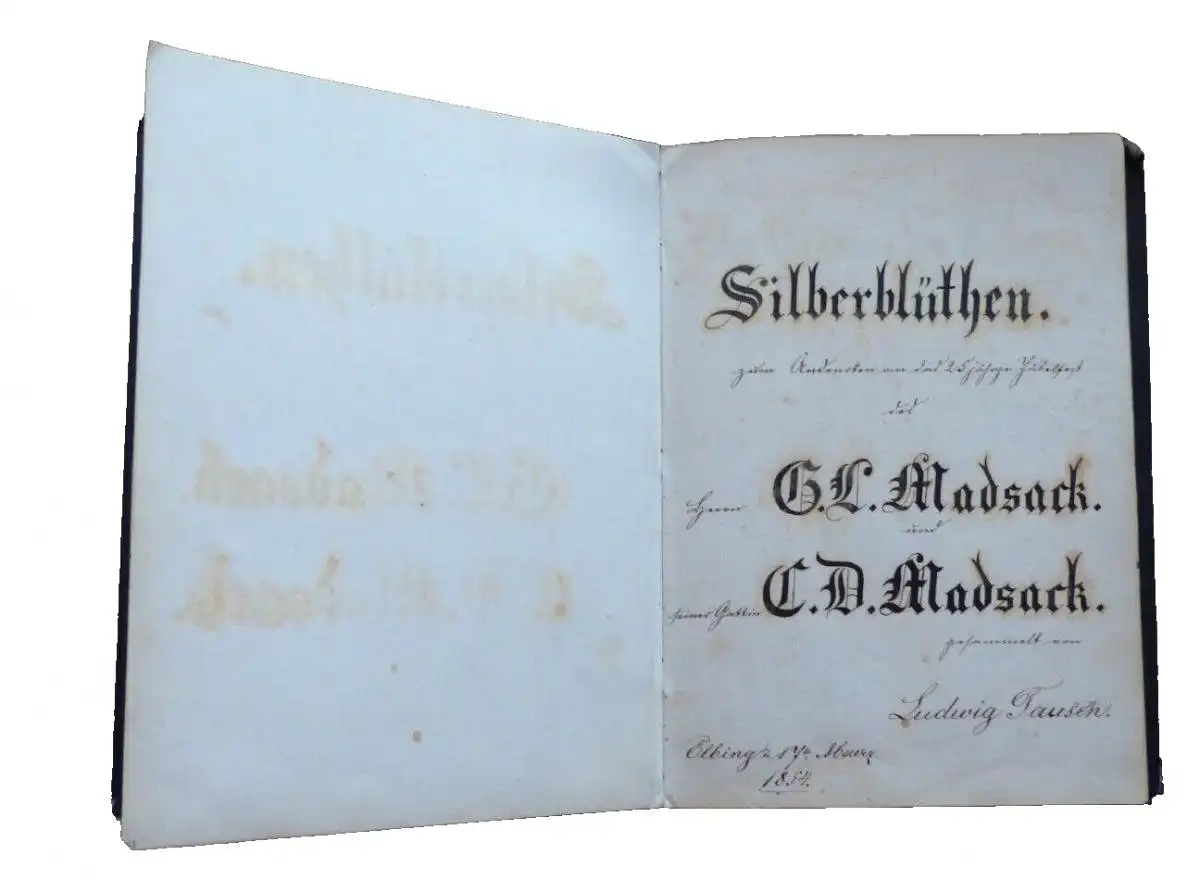 Silberblüthen.
zum Andenken an das 25 jährge Jubelfest
des
Herrn G.L. Madsack.
und
seiner Gattin C.D. Madsack.
gesammelt von
Ludwig Tausch.
Elbing
1854.